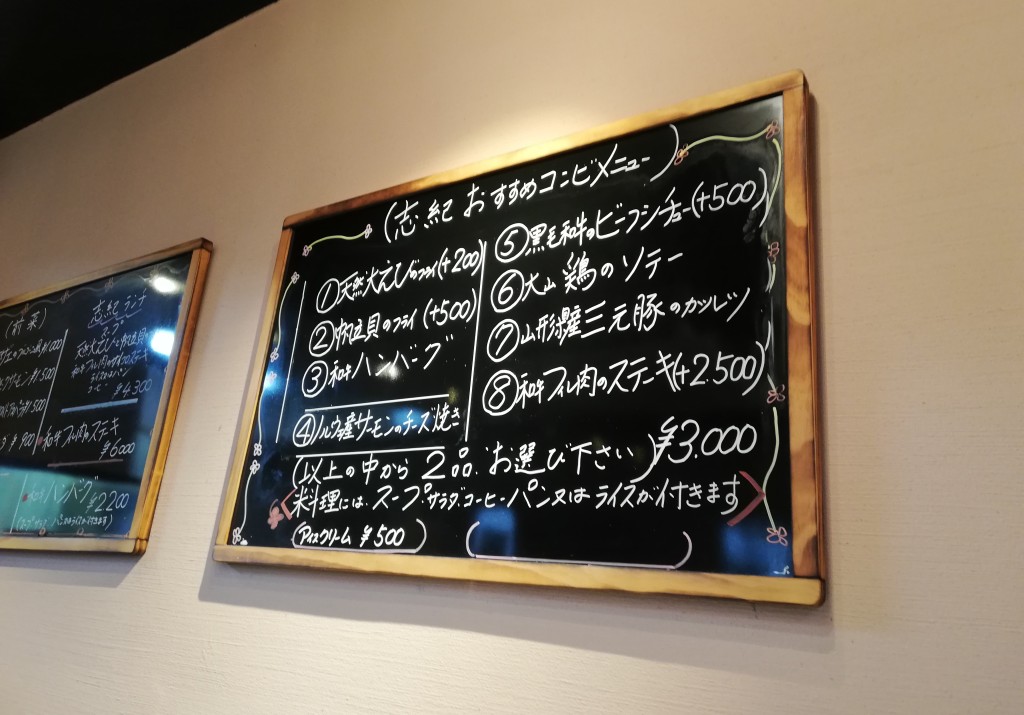 (志紀 おすすめコンビメニュー)
①天然大えびのフライ(+200)
②帆立貝のフライ(+500)
③和牛ハンバーグ
④ノルウェー産サーモンのチーズ焼き
⑤黒毛和牛のビーフシチュー(+500)
⑥大山鶏のソテー
⑦山形緑産三元豚のカツレツ
⑧和牛フィレ肉のステーキ(+2.500)
(以上の中から2品.お選び下さい)¥3.000
〈料理には.スープ.サラダ.コーヒー.パン又はライスが付きます〉
(アイスクリーム ¥500)
(前菜)
志紀ランチ
スープ
¥4.300
¥900
和牛フィレ肉のステーキ
¥6.000
ハンバーグ
¥2.200